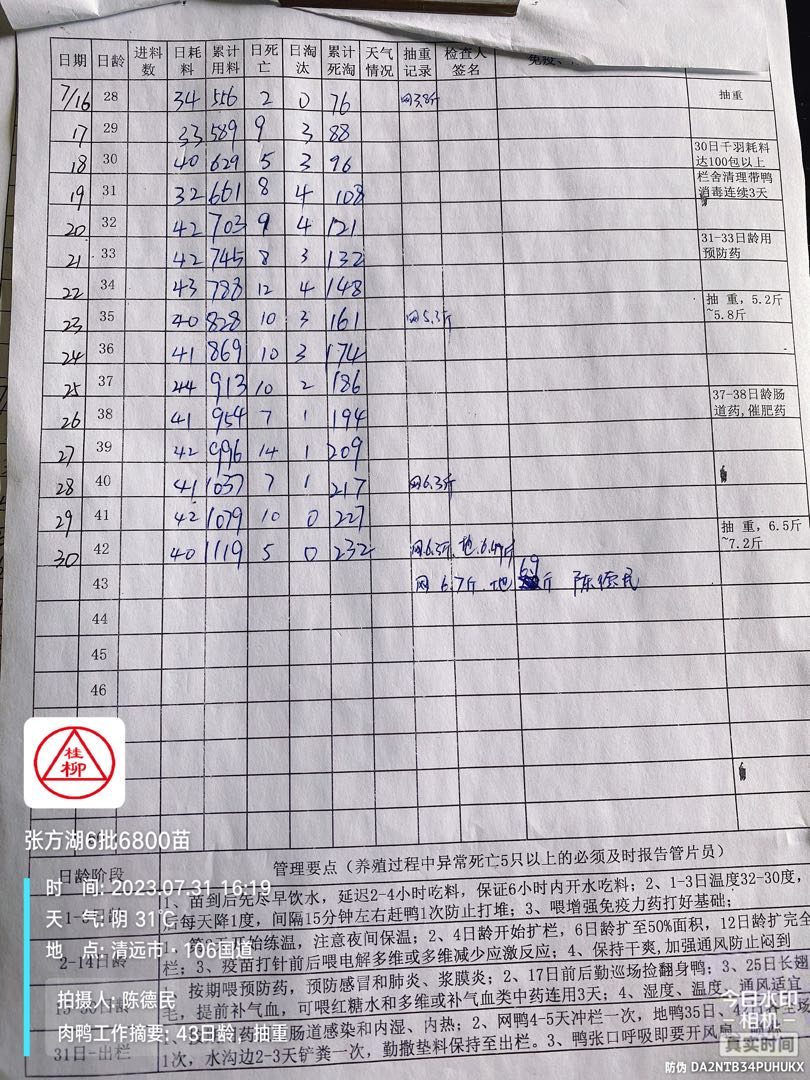 日期 日龄 进料数 日耗料 累计用料 日死亡 日淘汰 累计死淘 天气情况 抽重记录 检查人签名
7/16 28 34 556 2 0 76 网3.8斤 抽重
17 29 33 589 9 3 88
18 30 40 629 5 3 96 30日千羽耗料达100包以上
19 31 32 661 8 4 108 栏舍清理带鸭消毒连续3天
20 32 42 703 9 4 121
21 33 42 745 8 3 132 31-33日龄用预防药
22 34 43 788 12 4 148
23 35 40 828 10 3 161 网5.3斤 抽重，5.2斤~5.8斤
24 36 41 869 10 3 174
25 37 44 913 10 2 186
26 38 41 954 7 1 194 37-38日龄肠道药,催肥药
27 39 42 996 14 1 209
28 40 41 1037 7 1 217 网6.3斤
29 41 42 1079 10 0 227
30 42 40 1119 5 0 232 网6.3斤 地 抽重，6.5斤~7.2斤
43 网 6.7斤 地 6.9斤 陈德民
44
45
46
桂柳
张方湖6批6800苗
日龄阶段 管理要点（养殖过程中异常死亡5只以上的必须及时报告管片员）
1、苗到后先尽早饮水，延迟2-4小时吃料，保证6小时内开水吃料；2、1-3日温度32-30度，
后每天降1度，间隔15分钟左右赶鸭1次防止打堆；3、喂增强免疫力药打好基础；
2-14日龄 始练温，注意夜间保温；2、4日龄开始扩栏，6日龄扩至50%面积，12日龄扩完全
栏；3、疫苗打针前后喂电解多维或多维减少应激反应；4、保持干爽,加强通风防止闷到
按期喂预防药，预防感冒和肺炎、浆膜炎；2、17日前后勤巡场捡翻身鸭；3、25日长翅
毛，提前补气血，可喂红糖水和多维或补气血类中药连用3天；4、湿度、温度、通风适宜
肠道感染和内湿、内热；2、网鸭4-5天冲栏一次，地鸭35日、
31日-出栏 1次，水沟边2-3天铲粪一次，勤撒垫料保持至出栏。3、鸭张口呼吸即要开风扇
时 间: 2023.07.31 16:19
天 气: 阴 31℃
地 点: 清远市·106国道
拍摄人: 陈德民
肉鸭工作摘要: 43日龄，抽重
今日水印
相机
真实时间
防伪 DA2NTB34PUHUKX